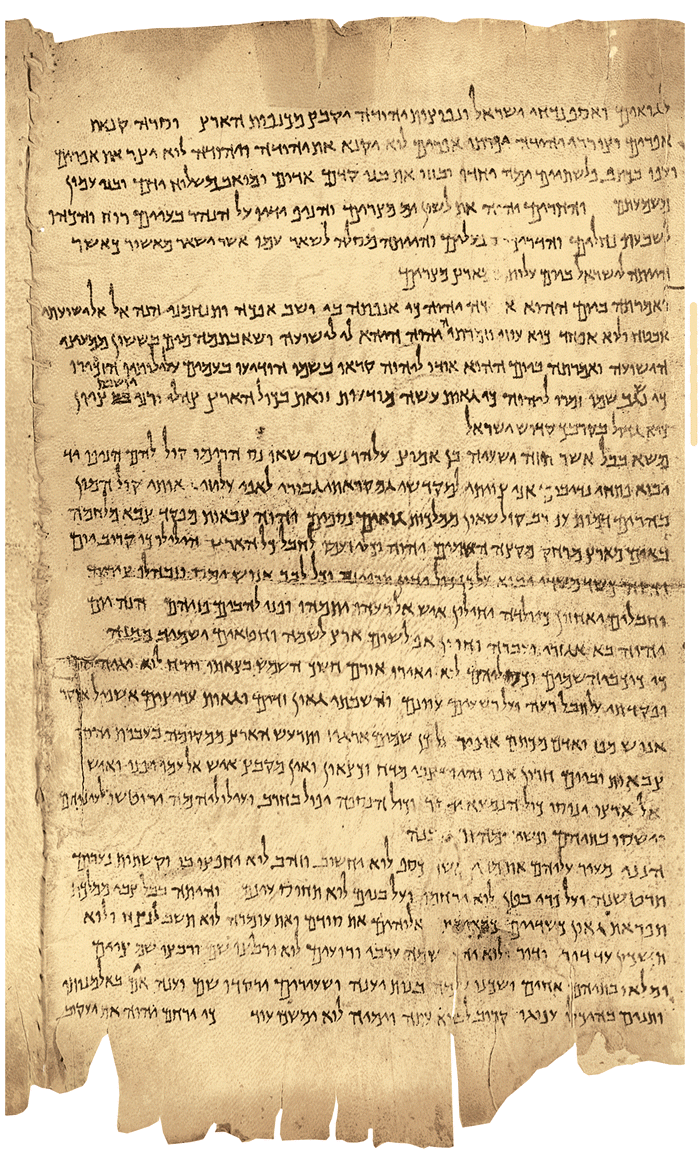 לגואים ואסף נדחי ישראל ונפוצות יהודה יקבץ מכנפות הארץ וסרה קנאת
אפרים וצוררי יהודה יכרתו אפרים לוא יקנא את יהודה ויהודה לוא יצר את אפרים
ועפו בכתף פלשתיים ימה יחדו ובזזו את בני קדם אדום ומואב משלוח ידם ובני עמון
משמעתם והחרים יהוה את לשון ים מצרים והניף ידיו על הנהר בעיים רוח והכהו
לשבעת נחלים והדריכו בנעלים והייתה מסלה לשאר עמו אשר ישאר מאשור כאשר
הייתה לישראל ביום עלותו מארץ מצרים
ואמרתה ביום ההוא יהוה כי אנפתה בי ישב אפכה ותנחמני הנה אל אל ישועתי
אבטח ולא אפחד כיא עוזי וזמרתי יהוה היהא לי לישועה ושאבתמה מים בששון ממעיני
הישועה ואמרתה ביום ההוא אודו ליהוה קראו בשמו הודיעו בעמים עלילותיו הזכירו
כי נשגב שמו זמרו ליהוה כי גאות עשה מודעות זואת בכול הארץ צהלי ורני יושבת ציון
כיא גדול בקרבך קדוש ישראל
משא בבל אשר חזה ישעיה בן אמוץ על הר נשפה שאו נס הרימו קול להם הניפו יד
יבוא פתחי נדיבים אני צויתי למקדשי גם קראתי גבורי לאפי עליזי גאותי קול המון
בהרים דמות עם רב קול שאון ממלכות גואים נספים יהוה צבאות מפקד צבא מלחמה
באים מארץ מרחק מקצה השמים יהוה וכלי זעמו לחבל כל הארץ הילילו כי קרוב יום
יהוה כשוד משדי יבוא על כן כול ידים תרפינה וכל לבב אנוש ימס ונבהלו צירים
וחבלים יאחזון כיולדה יחילון איש אל רעהו יתמהו ופני להבים פניהם הנה יום
יהוה בא אכזרי ועברה וחרון אף לשום ארץ לשמה וחטאים ישמיד ממנה
כי כוכבי השמים וכסיליהם לא יאירו אורם חשך השמש בצאתו וירח לוא יגיה
ופקדתי על תבל רעה ועל רשעים עוונם והשבתי גאון זדים וגאות עריצים אשפיל אוקר
אנוש מפז ואדם מכתם אופיר על כן שמים ארגיז ותרעש הארץ ממקומה בעברת יהוה
צבאות וביום חרון אפו והיו כצבי מדח וכצאון ואין מקבץ איש אל עמו יפנו ואיש
אל ארצו ינוסו כול הנמצא ידקר וכול הנספה יפול בחרב ועוליליהמה ירוטשו לעיניהם
וישסו בתיהם ונשיהמה
הנני מעיר עליהם את מדי אשר כסף לוא יחשובו וזהב לוא יחפצו בו וקשתות נערים
תרטשנה ועל פרי בטן לוא ירחמו ועל בנים לוא תחוס עינם והיתה בבל צבי ממלכות
תפראת גאון כשדיים כמהפכת אלוהים את סודם ואת עומרה לוא תשב לנצח ולוא
תשכון עד דור ודור ולוא שמה ערבי ורועים לוא ירבצו שם ורבצו שם ציים
ומלאו בתיהם אחים ושכנו שמה בנות יענה ושעירים ירקדו שם וענה איים באלמנותיו
ותנים בהיכלי ענוגו קרוב לבוא עתה וימיה לוא ימשכו עוד כי ירחם יהוה את יעקוב